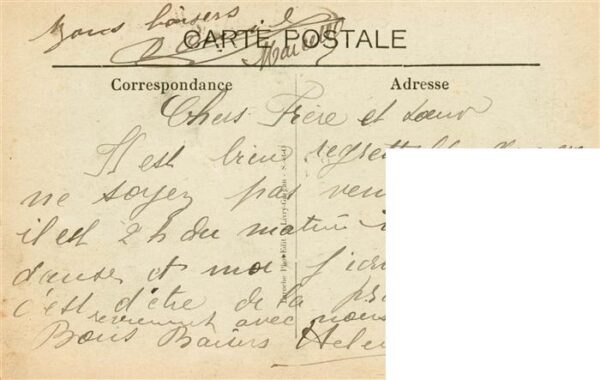 Bons baisers
Marcelle
CARTE POSTALE
Correspondance
Adresse
Chers Frère et soeur
Il est bien regrettable
ne soyez pas
il est 2 h du matin
danse et moi
c'est d'être de la
reviennent avec nous
Bons Baisers
Edit Livry-Gargan